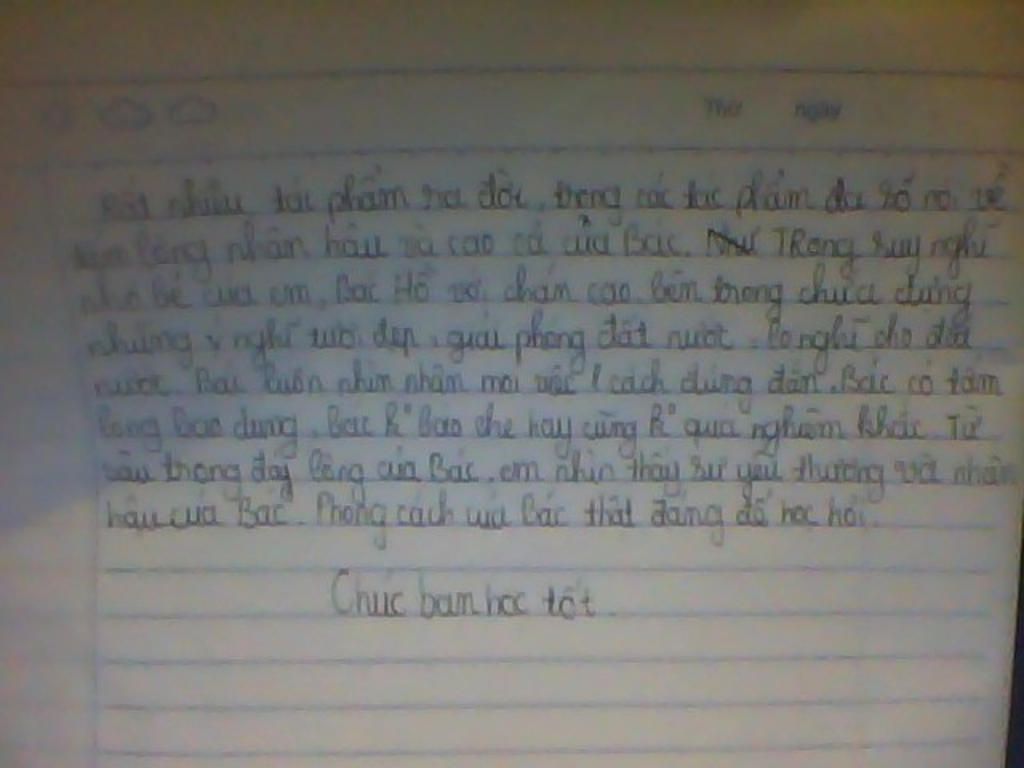 Thứ ngày
Rất nhiều tác phẩm ra đời, trong các tác phẩm đa số nói về
lòng nhân hậu và cao cả của Bác. Như TRong suy nghĩ
nhỏ bé của em, Bác Hồ với chán cao bên trong chứa đựng
những ý nghĩ tươi đẹp, giải phóng đất nước, lo nghĩ cho đất
nước. Bác luôn nhìn nhận mọi việc 1 cách đúng đắn. Bác có tấm
lòng bao dung. Bác k° bao che hay cũng k° quá nghiêm khắc. Từ
sâu trong đáy lòng của Bác, em nhìn thấy sự yêu thương và nhân
hậu của Bác. Phong cách của Bác thật đáng để học hỏi.
Chúc bạm học tốt.